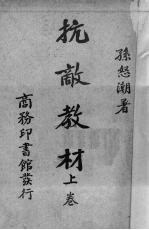 孫怒潮著
抗敵教材上卷
商務印書館發行